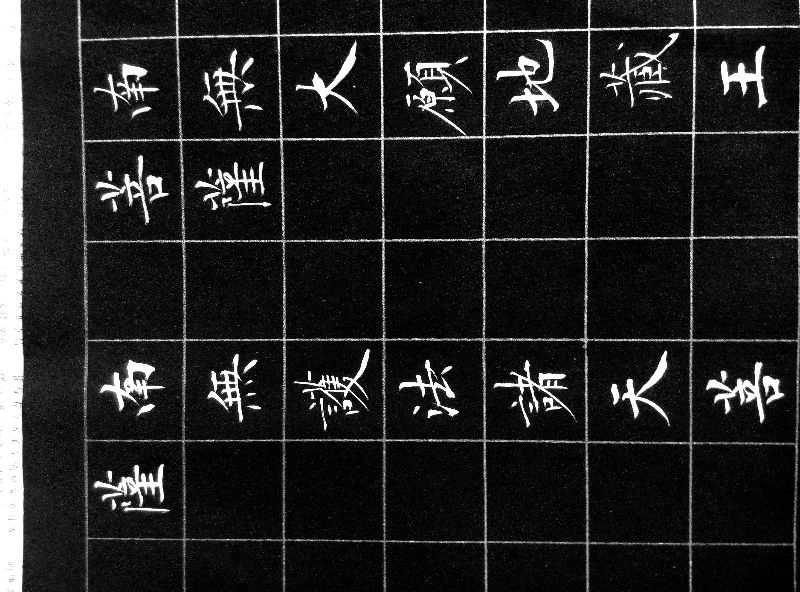 南無大願地藏王
菩薩
南無護法諸天菩
薩